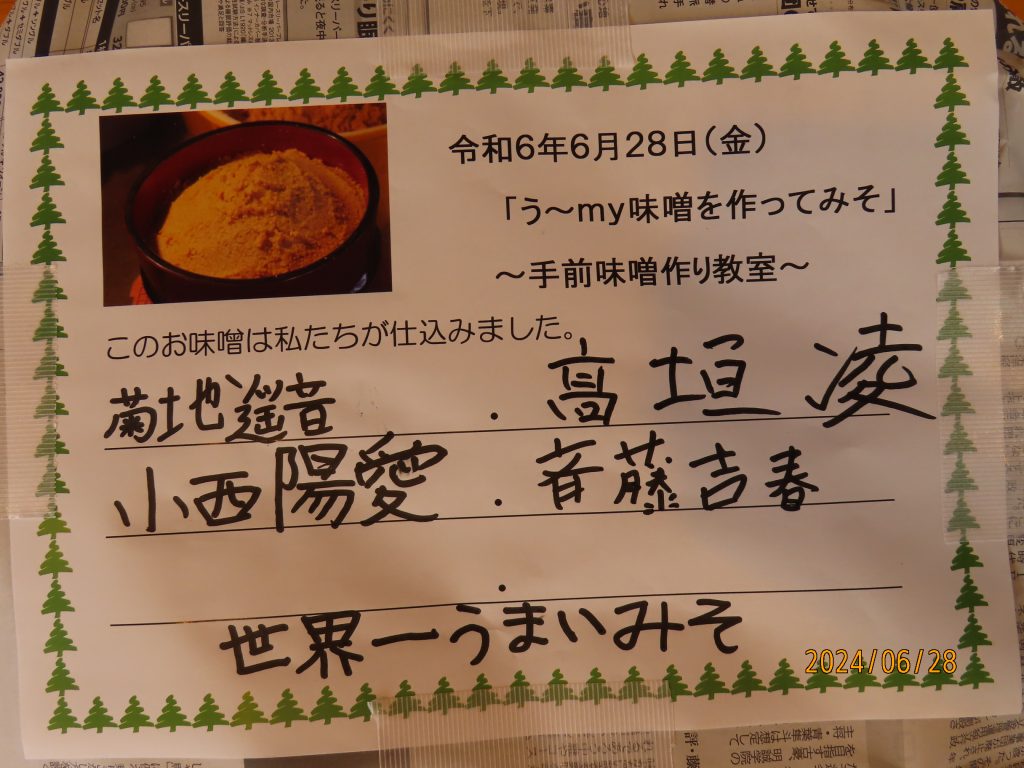 令和6年6月28日(金)
「う～my味噌を作ってみそ」
～手前味噌作り教室～
このお味噌は私たちが仕込みました。
菊地遥音 ・ 高垣 凌
小西陽愛 ・ 斉藤吉春
・
世界一うまいみそ
2024/06/28